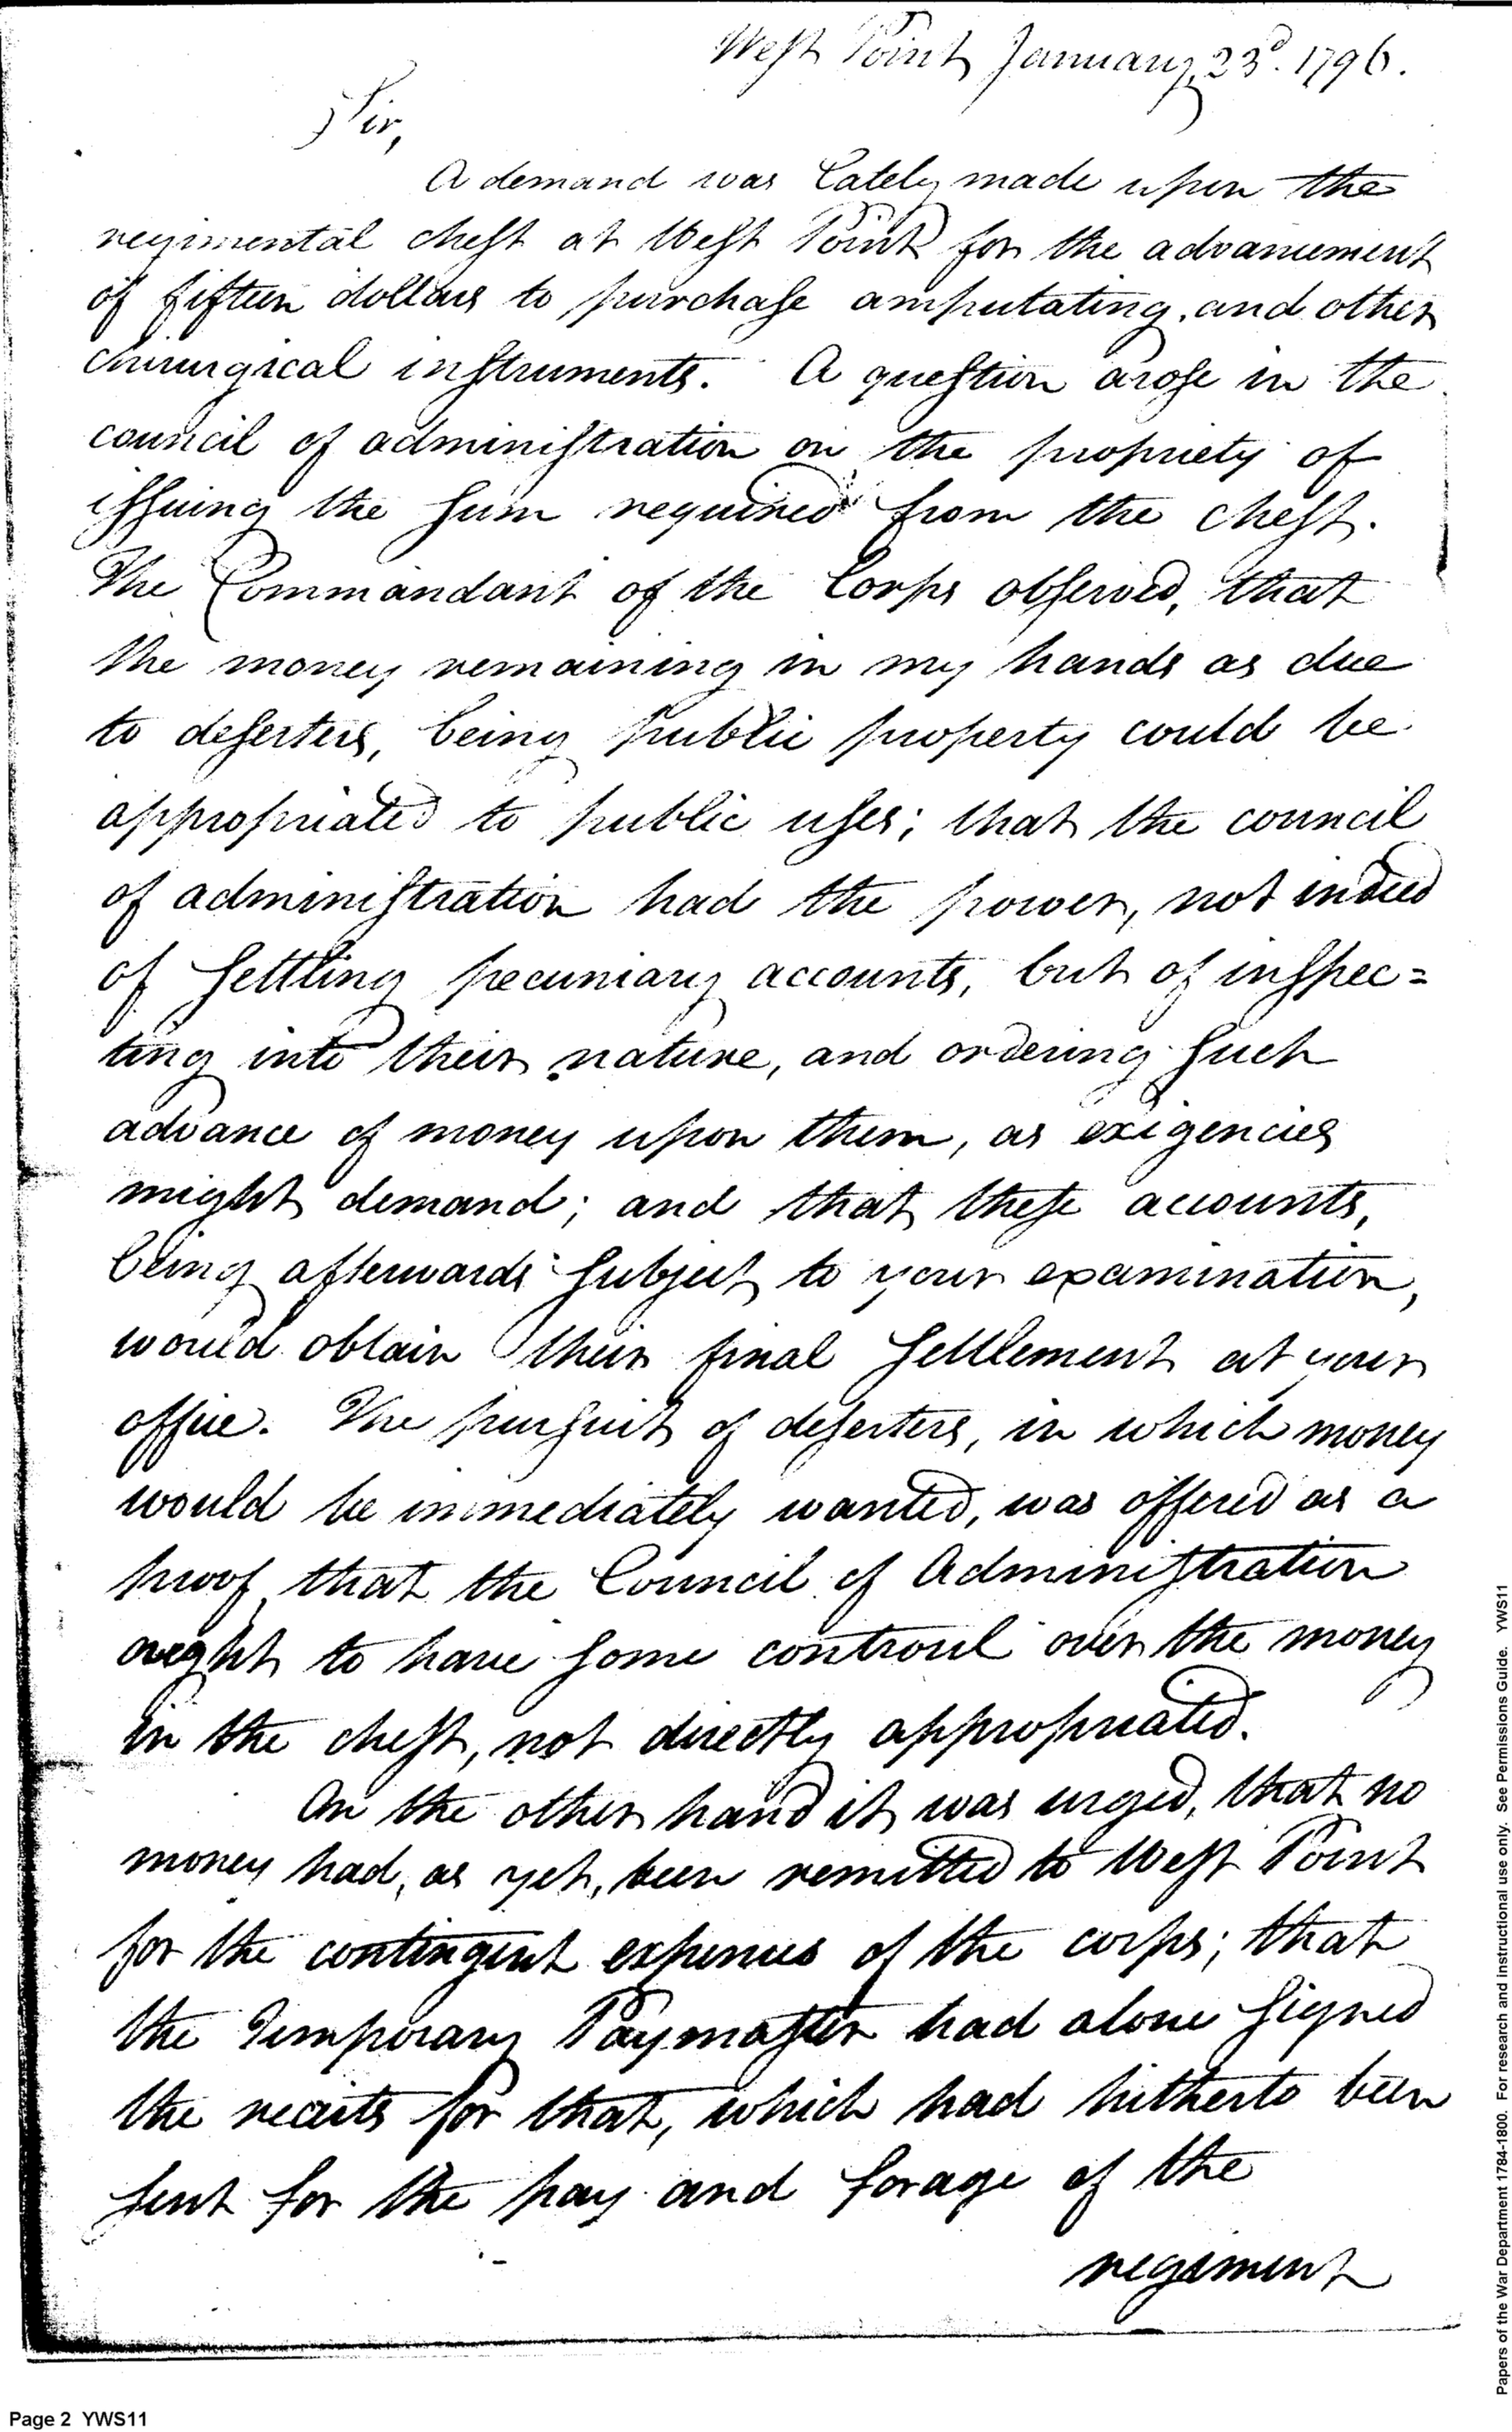 West Point January 23d. 1796.
Sir,
A demand was lately made upon the
regimental chest at West Point for the advancement
of fifteen dollars to purchase amputating, and other
chirurgical instruments. A question arose in the
council of administration on the propriety of
issuing the sum required from the chest.
The Commandant of the Corps observed, that
the money remaining in my hands as due
to deserters, being public property could be
appropriated to public uses; that the council
of administration had the power, not indeed
of settling pecuniary accounts, but of inspec=
ting into their nature, and ordering such
advance of money upon them, as exigencies
might demand; and that these accounts,
being afterwards subject to your examination,
would obtain their final settlement at your
office. The pursuit of deserters, in which money
would be immediately wanted, was offered as a
proof, that the Council of Administration
ought to have some controul over the money
in the chest, not directly appropriated.
On the other hand it was urged, that no
money had, as yet, been remitted to West Point
for the contingent expences of the corps; that
the Temporary Paymaster had alone signed
the receits for that, which had hitherto been
sent for the pay and forage of the
regiment
Page 2 YWS11
Papers of the War Department 1784-1800. For research and instructional use only. See Permissions Guide. YWS11